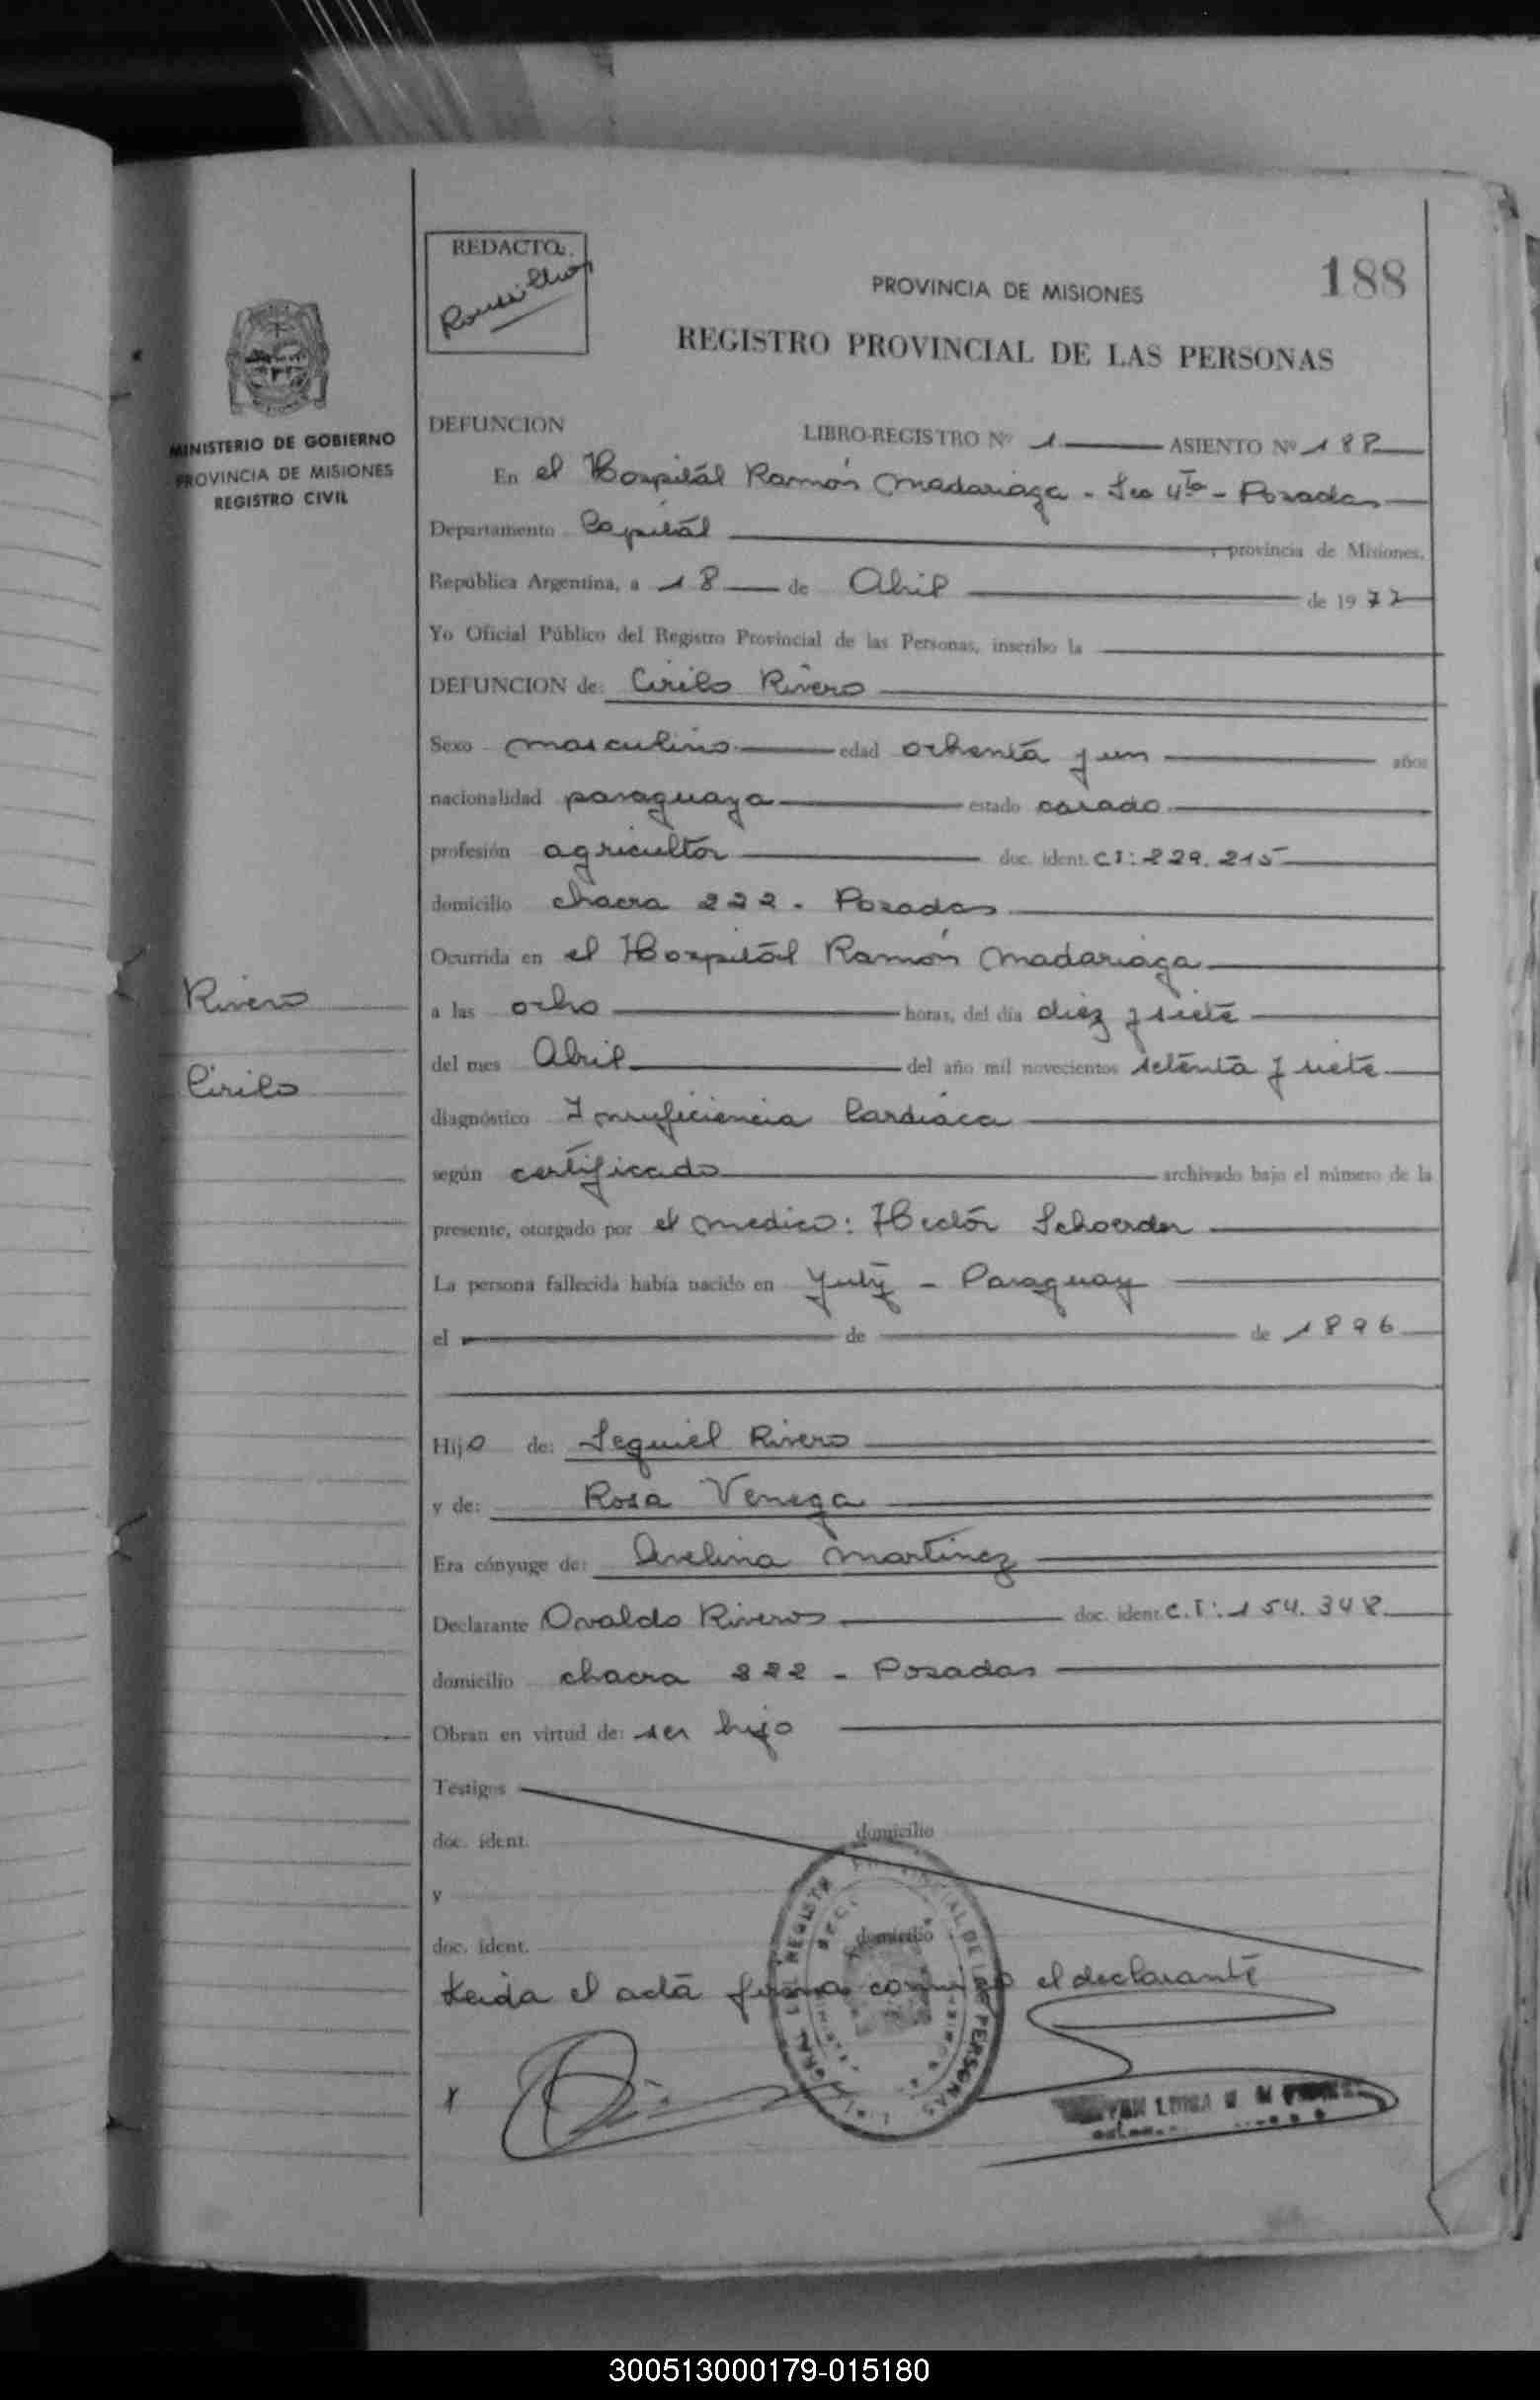 REDACTO:
188
PROVINCIA DE MISIONES
REGISTRO PROVINCIAL DE LAS PERSONAS
MINISTERIO DE GOBIERNO
PROVINCIA DE MISIONES
REGISTRO CIVIL
DEFUNCION LIBRO-REGISTRO Nº 1 ASIENTO Nº 188
En el Hospital Ramón Madariaga - Sec 4ta - Posadas
Departamento Capital, provincia de Misiones,
República Argentina, a 18 de Abril de 1977
Yo Oficial Público del Registro Provincial de las Personas, inscribo la
DEFUNCION de: Cirilo Rivero
Sexo masculino edad ochenta y un años
nacionalidad paraguaya estado casado
profesión agricultor doc. ident. CI: 229.215
domicilio chacra 222 - Posadas
Ocurrida en el Hospital Ramón Madariaga
Rivero
Cirilo
a las ocho horas, del día diez y siete
del mes Abril del año mil novecientos setenta y siete
diagnóstico Insuficiencia Cardiaca
según certificado archivado bajo el número de la
presente, otorgado por el medico: Hector Schoerder
La persona fallecida había nacido en Yuty - Paraguay
el de de 1896
Hijo de: Sequiel Rivero
y de: Rosa Venega
Era cónyuge de: Avelina Martinez
Declarante Osvaldo Riveros doc. ident. C.I: 154.348
domicilio chacra 222 - Posadas
Obran en virtud de: ser hijo
Testigos
doc. ident. domicilio
y
doc. ident. domicilio
Leida el acta firma conmigo el declarante
x
300513000179-015180